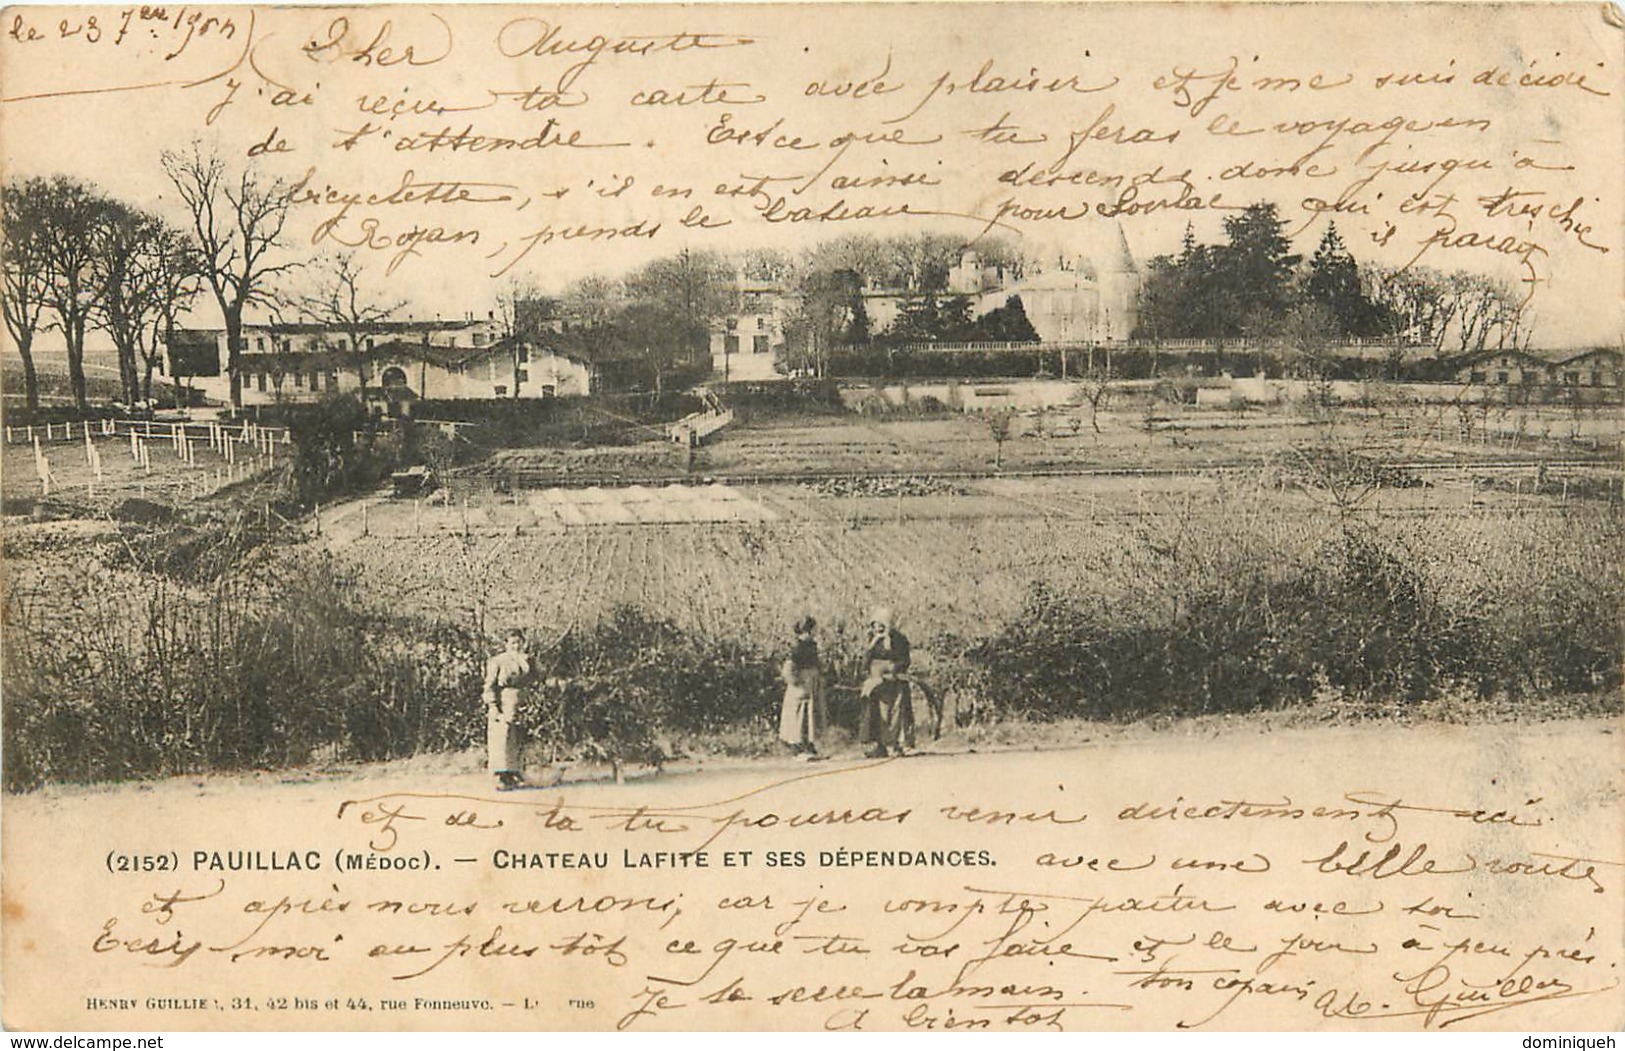 le 23 7bre 1904
Cher Auguste
J'ai reçu ta carte avec plaisir et je me suis décidé
de t'attendre. Est ce que tu feras le voyage en
bicyclette, s'il en est ainsi descends donc jusqu'à
Royan, prends le bateau pour Soulac qui est très chic
il paraît
et de la tu pourras venir directement ici
(2152) PAUILLAC (MÉDOC). — CHATEAU LAFITE ET SES DÉPENDANCES.
avec une belle route,
et après nous verrons, car je compte partir avec toi
Ecris-moi au plus tôt ce que tu vas faire et le jour à peu près.
Je te serre la main. Ton copain
A bientot
HENRY GUILLIE, 31, 42 bis et 44, rue Fonneuve. — L rne
dominiqueh